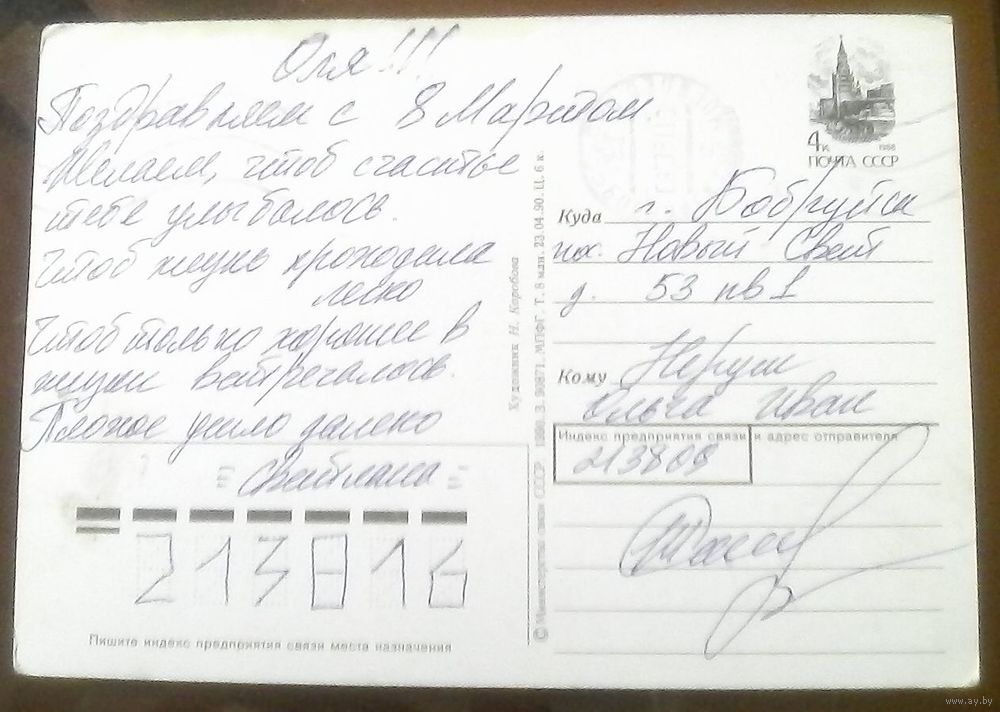 Оля!!!
Поздравляем с 8 Мартом
Желаем, чтоб счастье
тебе улыбалось.
Чтоб жизнь проходила
легко
Чтоб только хорошее в
жизни встречалось.
Плохое ушло далеко
Светлана
213816
Пишите индекс предприятия связи места назначения
© Министерство связи СССР 1990. З. 90871. МПФГ. Т. 8 млн. 23.04.90. Ц. 6 к.
Художник Н. Коробова
4к 1988
ПОЧТА СССР
Куда г. Бобруйск
пос. Новый Свет
д. 53 кв 1
Кому
Ольга Иван
Индекс предприятия связи и адрес отправителя
213808
www.ay.by